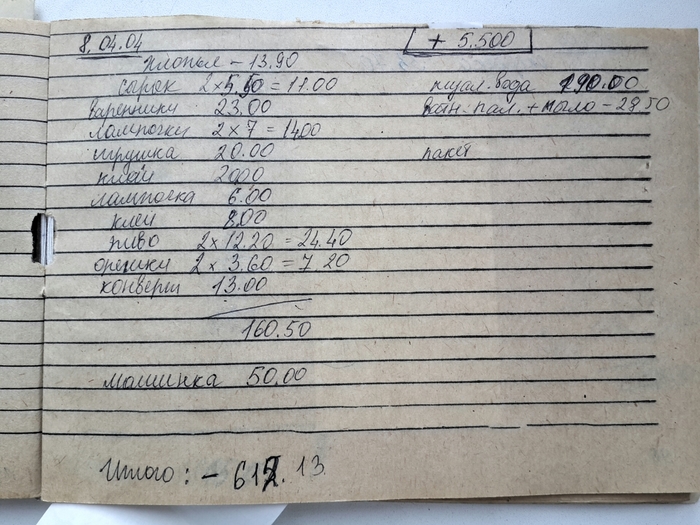 8.04.04
+ 5.500
хлопья - 13.90
сырок 2 x 5.50 = 11.00
варенники 23.00
лампочки 2 x 7 = 14.00
игрушка 20.00
клей 20.00
лампочка 6.00
клей 8.00
пиво 2 x 12.20 = 24.40
орешки 2 x 3.60 = 7.20
конверты 13.00
160.50
машинка 50.00
вода 190.00
ватн. пал. + мыло - 28.50
пакет
Итого: - 612.13